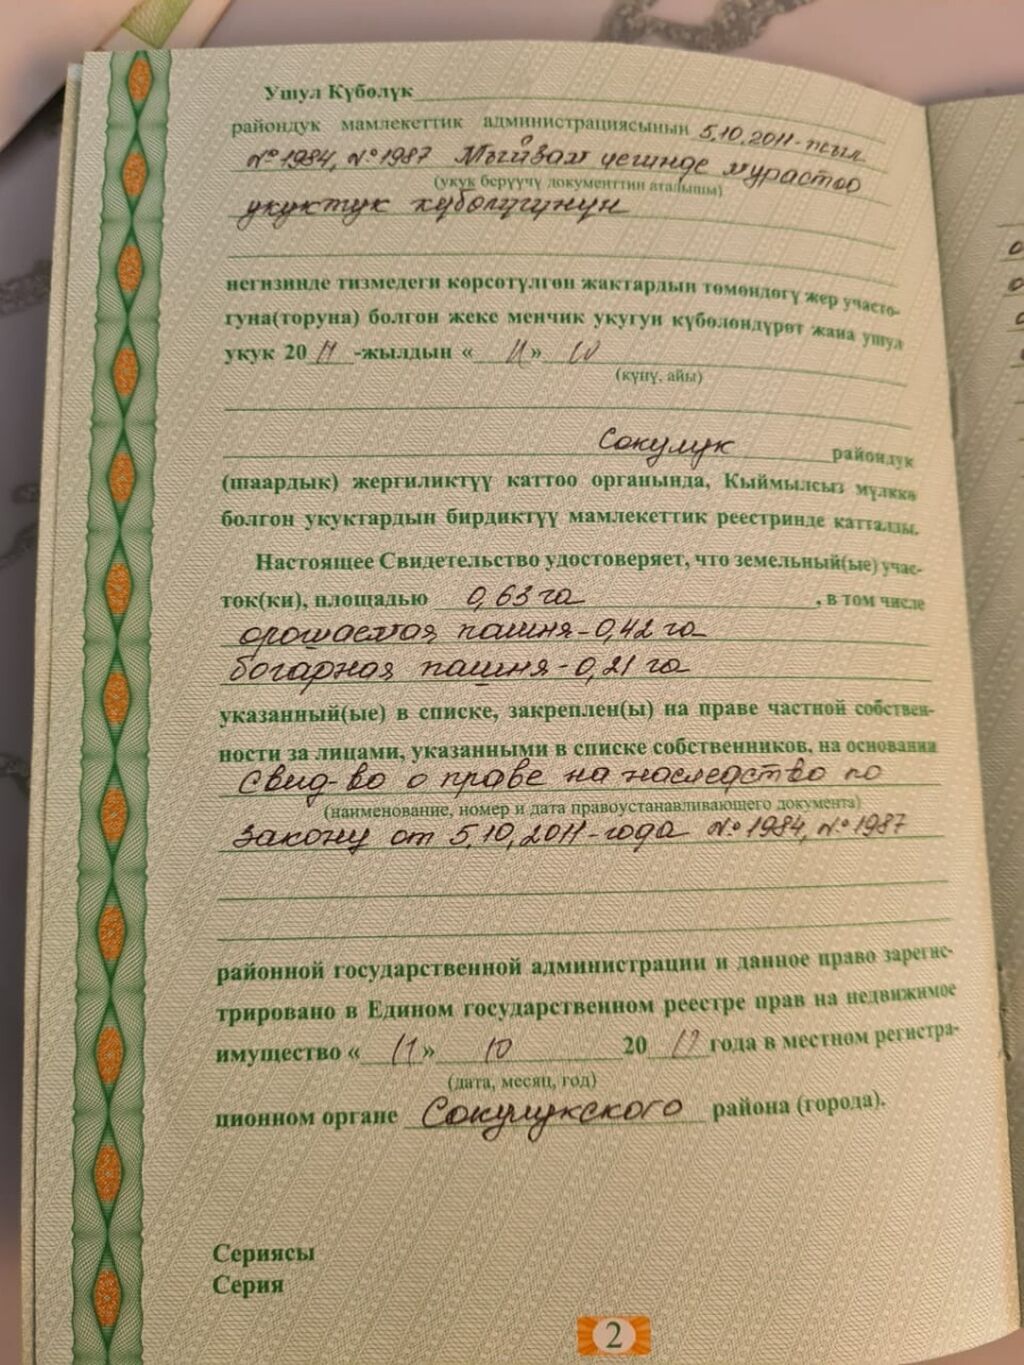 Ушул Күбөлүк
райондук мамлекеттик администрациясынын 5.10.2011-жыл
№1984, №1987 Мыйзам чегинде мурастоо
(укук берүүчү документтин аталышы)
укуктук күбөлүгүнүн
негизинде тизмедеги көрсөтүлгөн жактардын төмөндөгү жер участо-
гуна(торуна) болгон жеке менчик укугун күбөлөндүрөт жана ушул
укук 20 11 -жылдын « 11 » 10
(күнү, айы)
Сокулук райондук
(шаардык) жергиликтүү каттоо органында, Кыймылсыз мүлккө
болгон укуктардын бирдиктүү мамлекеттик реестринде катталды.
Настоящее Свидетельство удостоверяет, что земельный(ые) учас-
ток(ки), площадью 0,63 га , в том числе
орошаемая пашня-0,42 га
богарная пашня-0,21 га
указанный(ые) в списке, закреплен(ы) на праве частной собствен-
ности за лицами, указанными в списке собственников, на основании
Свид-во о праве на наследство по
(наименование, номер и дата правоустанавливающего документа)
закону от 5,10,2011-года №1984, №1987
районной государственной администрации и данное право зарегис-
трировано в Едином государственном реестре прав на недвижимое
имущество « 11 » 10 20 года в местном регистра-
(дата, месяц, год)
ционном органе Сокулукского района (города).
Сериясы
Серия
2